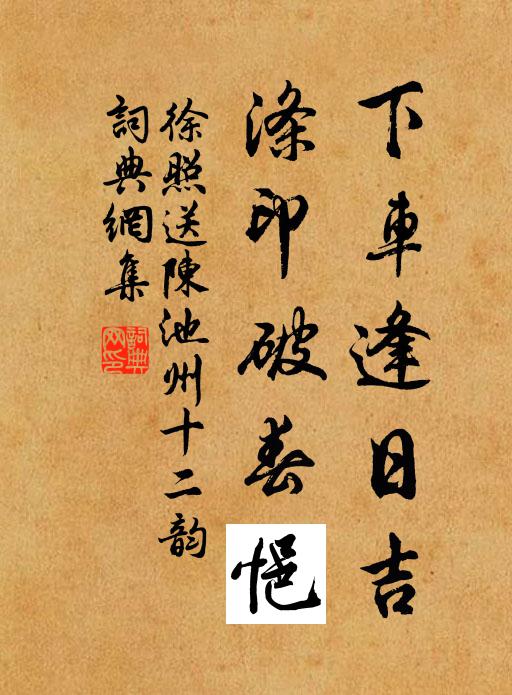 下車逢日吉
滌印破春悒
徐照送陳池州十二韵
詞典網集
詞典網印